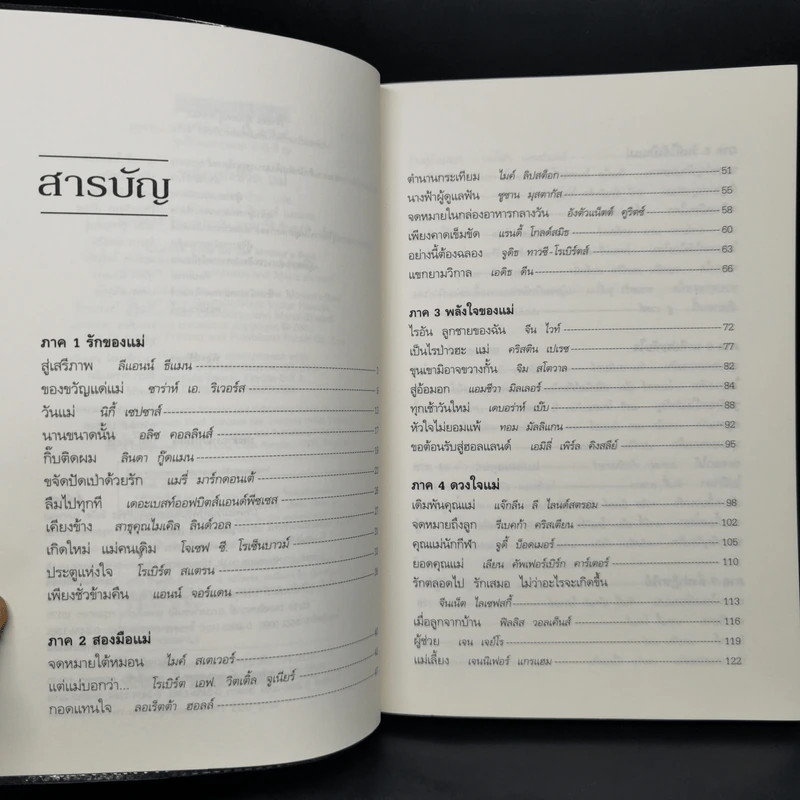 สารบัญ
ภาค 1 รักของแม่
สู่เสรีภาพ ลีแอนน์ ธีแมน
ของขวัญแด่แม่ ซาร่าห์ เอ. ริเวอร์ส
วันแม่ นิกี้ เซปซาส์
นานขนาดนั้น อลิซ คอลลินส์
กิ๊บติดผม ลินดา กู๊ดแมน
ขจัดปัดเป่าด้วยรัก แมรี่ มาร์กดอนเต้
ลืมไปทุกที เดอะเบสท์ออฟบิตส์แอนด์พีซเซส
เคียงข้าง สาธุคุณไมเคิล ลินด์วอล
เกิดใหม่ แม่คนเดิม โจเซฟ ซี. โรเซ็นบาวม์
ประตูแห่งใจ โรเบิร์ต สแตรน
เพียงชั่วข้ามคืน แอนน์ จอร์แดน
ภาค 2 สองมือแม่
จดหมายใต้หมอน ไมค์ สเตเวอร์
แต่แม่บอกว่า... โรเบิร์ต เอฟ. วิตเติ้ล จูเนียร์
กอดแทนใจ ลอเร็ตต้า ฮอลล์
ตำนานกระเทียม ไมค์ ลิปสต็อก 51
นางฟ้าผู้ดูแลฟัน ซูซาน มุสตากัส 55
จดหมายในกล่องอาหารกลางวัน อังตัวแน็ตต์ คูริตซ์ 58
เพียงคาดเข็มขัด แรนดี้ โกลด์สมิธ 60
อย่างนี้ต้องฉลอง จูดิธ ทาวซี-โรเบิร์ตส์ 63
แขกยามวิกาล เอดิธ ดีน 66
ภาค 3 พลังใจของแม่
ไรอัน ลูกชายของฉัน จีน ไวท์ 72
เป็นไรป่าวฮะ แม่ คริสติน เปเรซ 77
ขุนเขามิอาจขวางกั้น จิม สโตวาล 82
สู่อ้อมอก แอมซีวา มิลเลอร์ 84
ทุกเช้าวันใหม่ เดบอร่าห์ เบ๊บ 88
หัวใจไม่ยอมแพ้ ทอม มัลลิแกน 92
ขอต้อนรับสู่ฮอลแลนด์ เอมิลี่ เพิร์ล คิงสลีย์ 95
ภาค 4 ดวงใจแม่
เดิมพันคุณแม่ แจ๊กลีน ลี ไลนด์สตรอม 98
จดหมายถึงลูก รีเบคก้า คริสเตียน 102
คุณแม่นักกีฬา จูดี้ บ็อดเมอร์ 105
ยอดคุณแม่ เลียน คัพเฟอร์เบิร์ก คาร์เตอร์ 110
รักตลอดไป รักเสมอ ไม่ว่าอะไรจะเกิดขึ้น
จีนเน็ต ไลเซฟสกี้ 113
เมื่อลูกจากบ้าน ฟิลลิส วอลเค้นส์ 116
ผู้ช่วย เจน เจย์โร 119
แม่เลี้ยง เจนนิเฟอร์ แกรแฮม 122